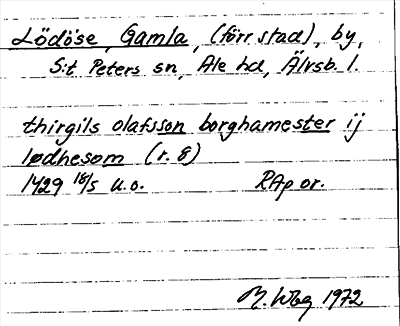 Lödöse, Gamla, (förr stad), by,
S:t Peters sn, Ale hd, Älvsb. l.
thirgils olafsson borghamester ij
lødhesom (r. 8)
1429 18/5 u.o. RAp or.
1972